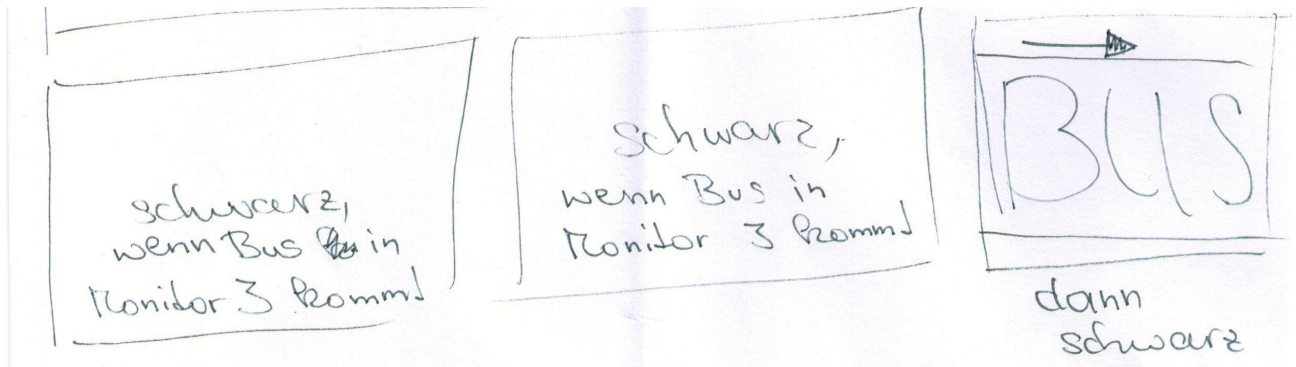 schwarz,
wenn Bus in
Monitor 3 kommt
schwarz,
wenn Bus in
Monitor 3 kommt
BUS
dann
schwarz